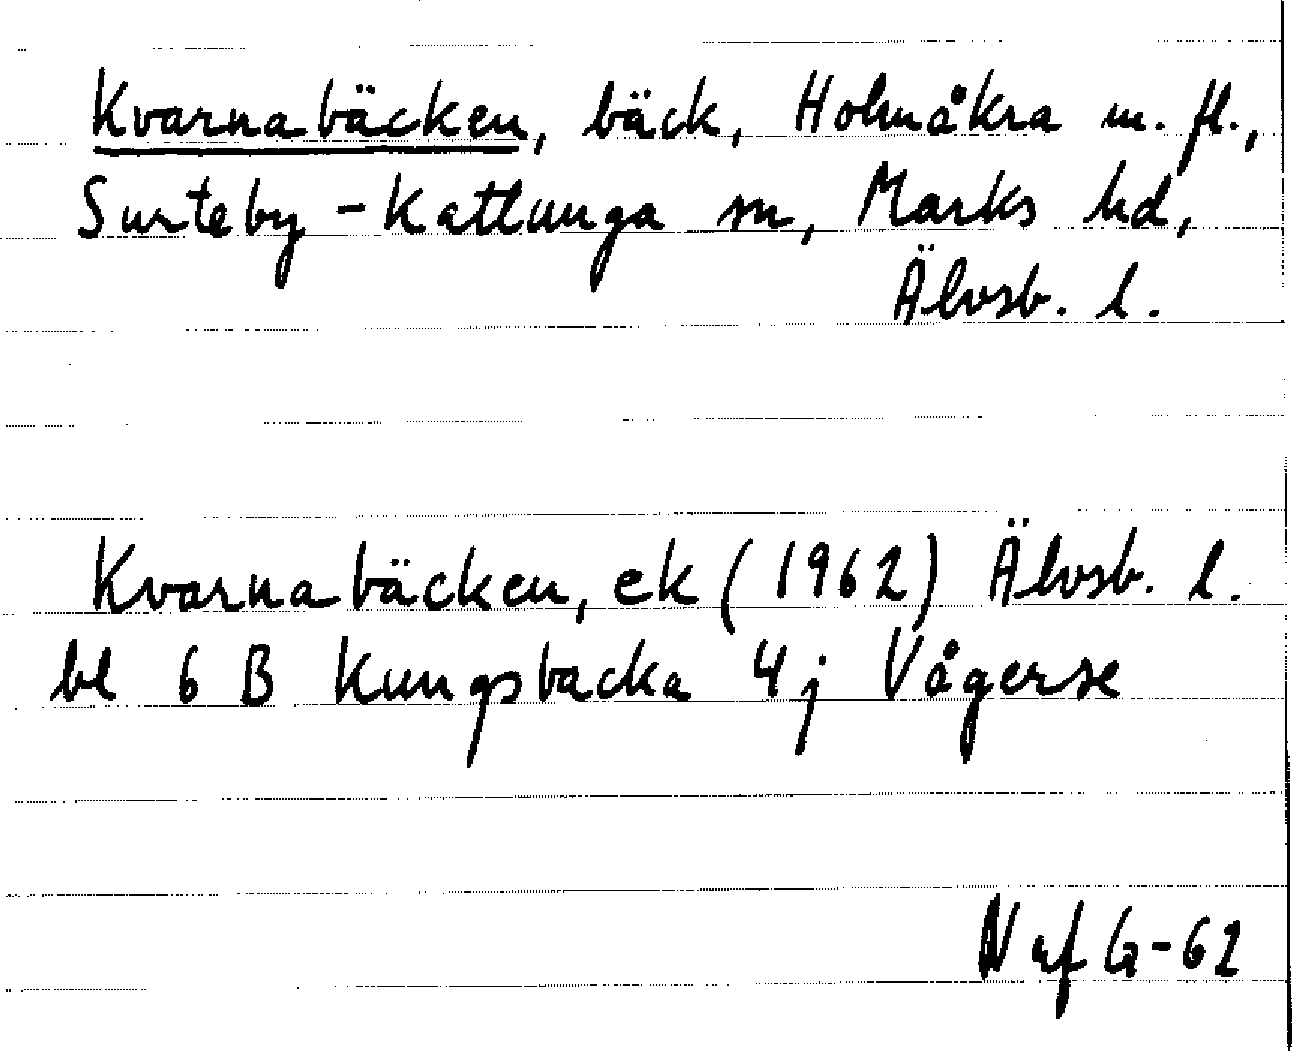 Kvarnabäcken, bäck, Holmåkra m. fl.,
Surteby-Kattunga sn, Marks hd,
Älvsb. l.
Kvarnabäcken, ek (1962) Älvsb. l.
bl 6 B Kungsbacka 4 j Vågerse
G-62